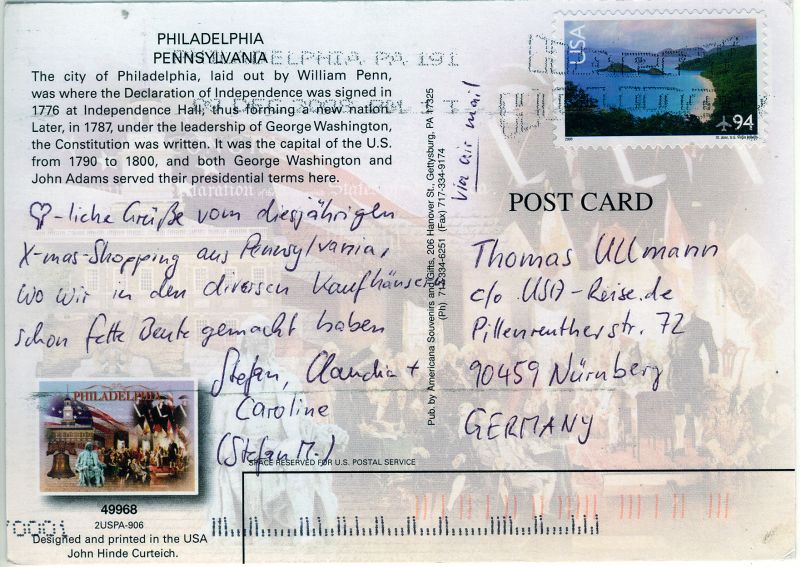 PHILADELPHIA
PENNSYLVANIA
The city of Philadelphia, laid out by William Penn,
was where the Declaration of Independence was signed in
1776 at Independence Hall, thus forming a new nation.
Later, in 1787, under the leadership of George Washington,
the Constitution was written. It was the capital of the U.S.
from 1790 to 1800, and both George Washington and
John Adams served their presidential terms here.
PHILADELPHIA PA 191
♡-liche Grüße vom diesjährigen
X-mas-Shopping aus Pennsylvania,
wo wir in den diversen Kaufhäusern
schon fette Beute gemacht haben
Stefan, Claudia +
Caroline
(Stefan M.)
PHILADELPHIA
49968
2USPA-906
Designed and printed in the USA
John Hinde Curteich.
70001
SPACE RESERVED FOR U.S. POSTAL SERVICE
Pub. by Americana Souvenirs and Gifts, 206 Hanover St., Gettysburg, PA 17325
(Ph) 717-334-6251 (Fax) 717-334-9174
via air mail
USA
94
POST CARD
Thomas Ullmann
c/o USA-Reise.de
Pillenreutherstr. 72
90459 Nürnberg
GERMANY